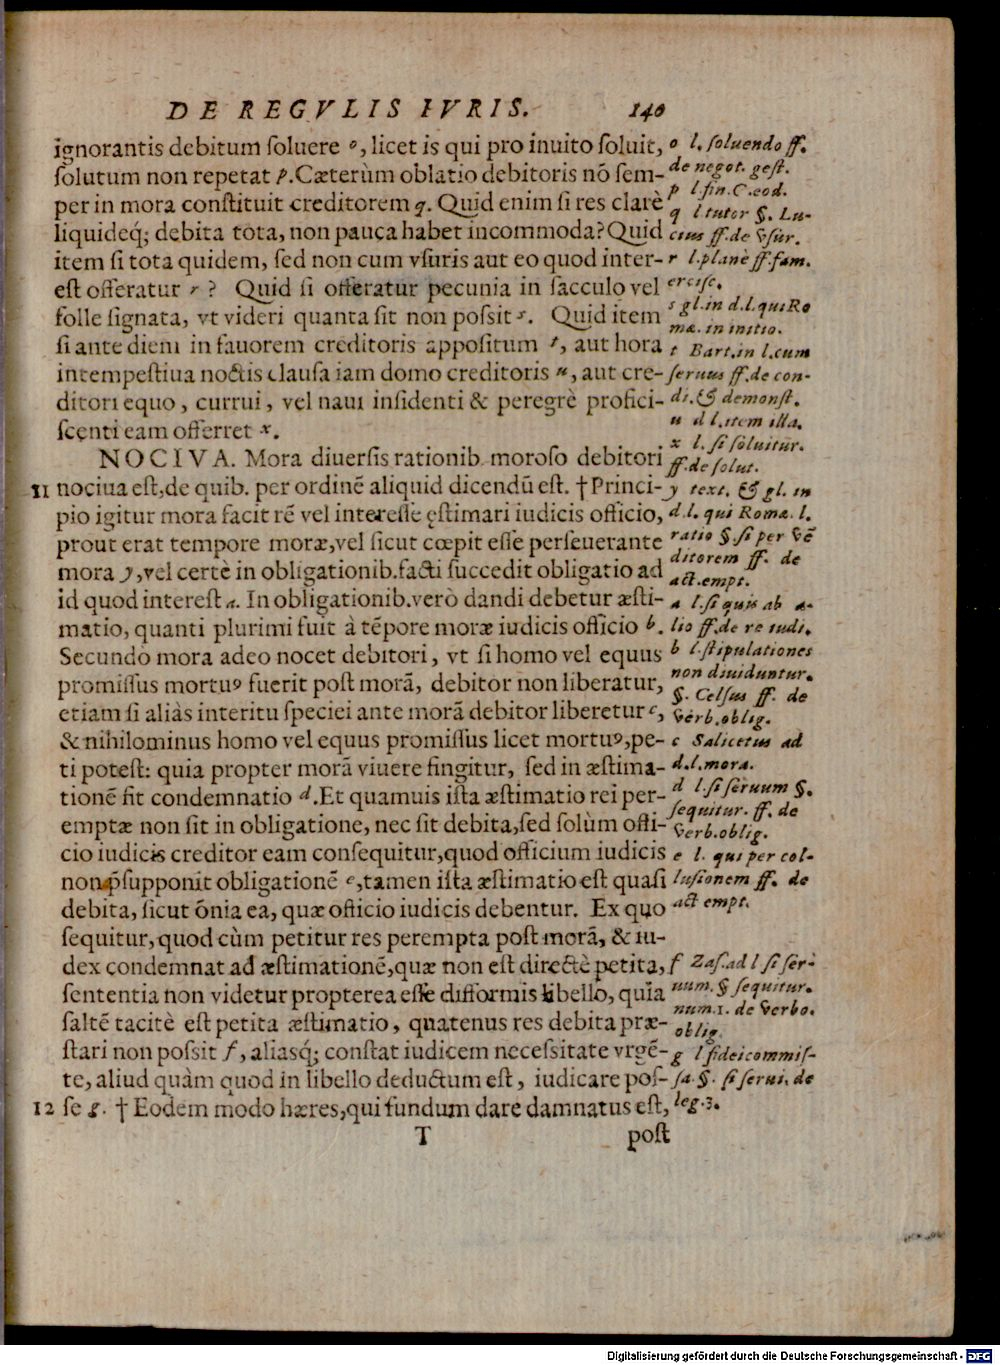 DE REGVLIS IVRIS. 140
ignorantis debitum ſoluere o, licet is qui pro inuito ſoluit,
ſolutum non repetat p. Cæterùm oblatio debitoris nō ſem-
per in mora conſtituit creditorem q. Quid enim ſi res clarè
liquideq́; debita tota, non pauca habet incommoda? Quid
item ſi tota quidem, ſed non cum vſuris aut eo quod inter-
eſt offeratur r? Quid ſi offeratur pecunia in ſacculo vel
folle ſignata, vt videri quanta ſit non poſsit s. Quid item
ſi ante diem in fauorem creditoris appoſitum t, aut hora
intempeſtiua noctis clauſa iam domo creditoris u, aut cre-
ditori equo, currui, vel naui inſidenti & peregrè profici-
ſcenti eam offerret x.
NOCIVA. Mora diuerſis rationib. moroſo debitori
11 nociua eſt, de quib. per ordinē aliquid dicendū eſt. †Princi-
pio igitur mora facit rē vel intereſſe ęſtimari iudicis officio,
prout erat tempore moræ, vel ſicut cœpit eſſe perſeuerante
mora y, vel certè in obligationib. facti ſuccedit obligatio ad
id quod intereſt a. In obligationib. verò dandi debetur æſti-
matio, quanti plurimi fuit à tēpore moræ iudicis officio b.
Secundò mora adeo nocet debitori, vt ſi homo vel equus
promiſſus mortuꝰ fuerit poſt morā, debitor non liberatur,
etiam ſi aliàs interitu ſpeciei ante morā debitor liberetur c,
& nihilominus homo vel equus promiſſus licet mortuꝰ, pe-
ti poteſt: quia propter morā viuere fingitur, ſed in æſtima-
tionē fit condemnatio d. Et quamuis iſta æſtimatio rei per-
emptæ non ſit in obligatione, nec ſit debita, ſed ſolùm offi-
cio iudicis creditor eam conſequitur, quod officium iudicis
non p̄ſupponit obligationē e, tamen iſta æſtimatio eſt quaſi
debita, ſicut ōnia ea, quæ officio iudicis debentur. Ex quo
ſequitur, quod cùm petitur res perempta poſt morā, & iu-
dex condemnat ad æſtimationē, quæ non eſt directè petita,
ſententia non videtur propterea eſſe difformis libello, quia
ſaltē tacitè eſt petita æſtimatio, quatenus res debita præ-
ſtari non poſsit f, aliasq́; conſtat iudicem neceſsitate vrgē-
te, aliud quàm quod in libello deductum eſt, iudicare poſ-
12 ſe g. † Eodem modo hæres, qui fundum dare damnatus eſt,
T poſt
o l. ſoluendo ff.
de negot. geſt.
p l. fin. C. eod.
q l. tutor §. Lu-
cius ff. de vſur.
r l. planè ff. fam.
erciſc.
s gl. in d. l. qui Ro
mæ. in initio.
t Bart. in l. cum
ſeruus ff. de con-
di. & demonſt.
u d l. item illa.
x l. ſi ſoluitur.
ff. de ſolut.
y text. & gl. in
d. l. qui Romæ. l.
ratio §. ſi per vē
ditorem ff. de
act. empt.
a l. ſi quis ab a-
lio ff. de re iudi.
b l. ſtipulationes
non diuiduntur.
§. Celſus ff. de
verb. oblig.
c Salicetus ad
d. l. mora.
d l. ſi ſeruum §.
ſequitur. ff. de
verb. oblig.
e l. qui per col-
luſionem ff. de
act empt.
f Zaſ. ad l ſi ſer-
uum. § ſequitur.
num. 1. de verbo.
oblig.
g l fideicommiſ-
ſa. §. ſi ſerui. de
leg. 3.
Digitalisierung gefördert durch die Deutsche Forschungsgemeinschaft - DFG